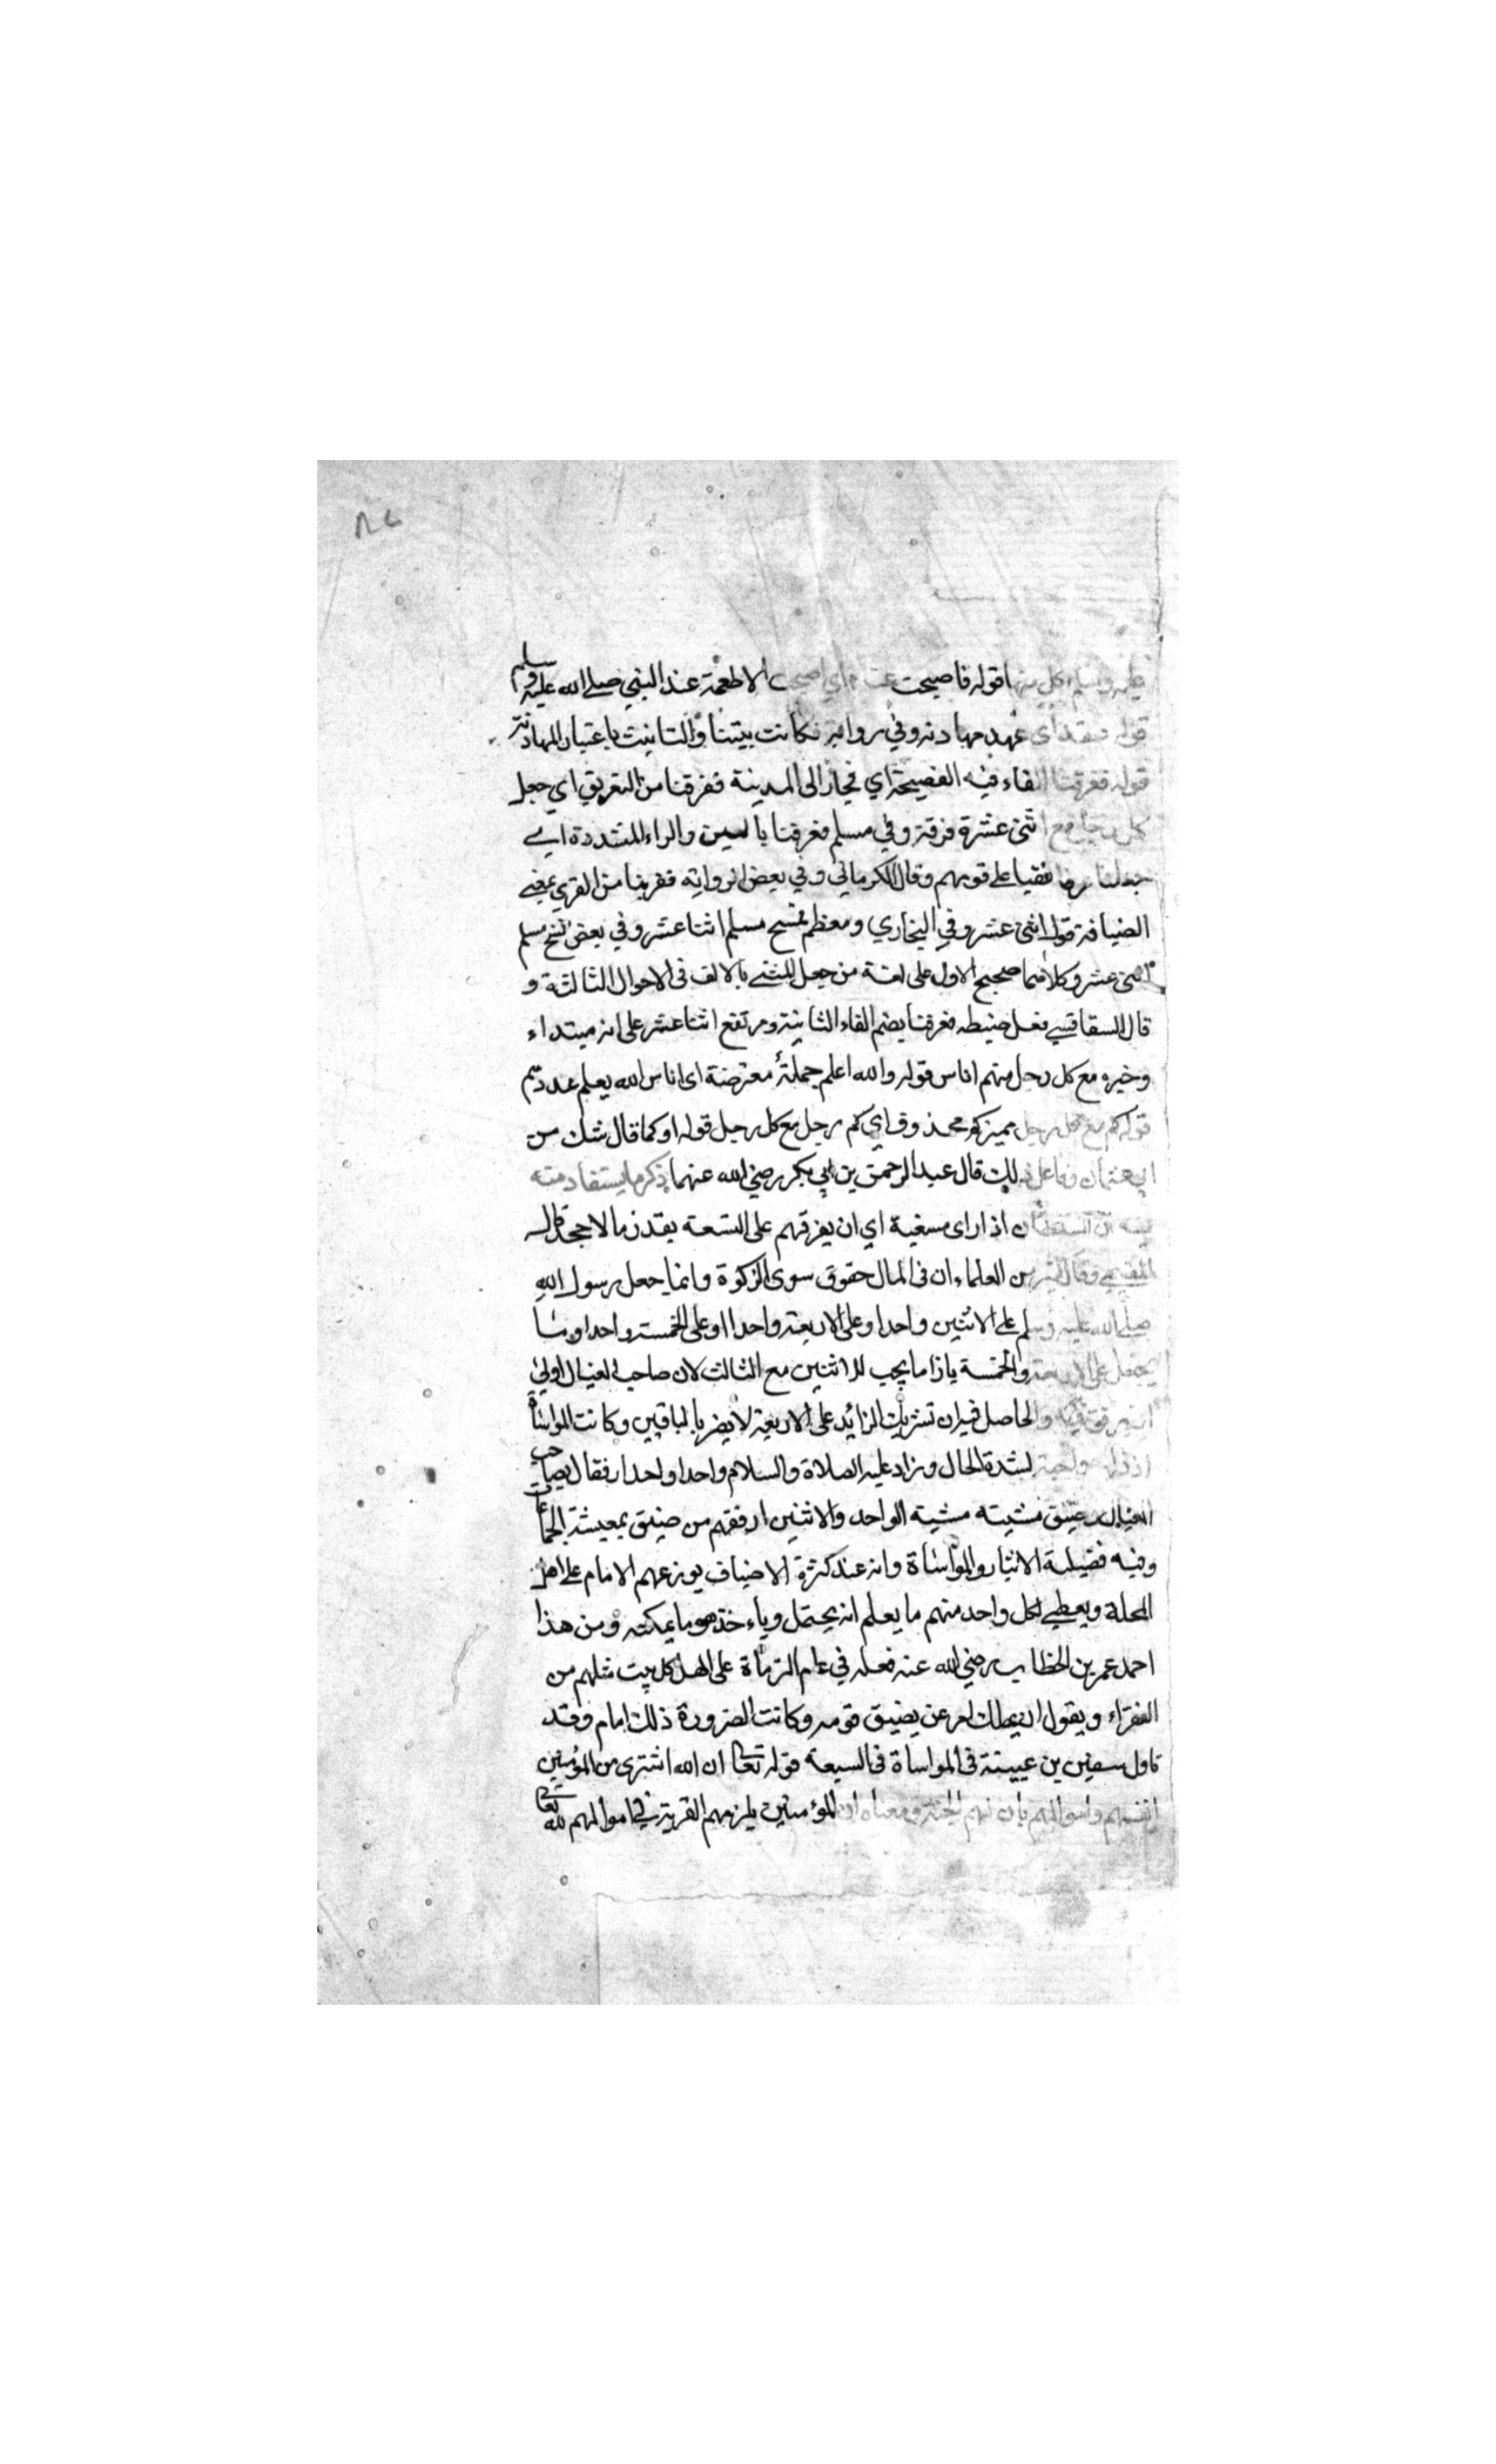 ٨٤
عليه وسلم اكل منها قوله فاصبحت عنده اي اصبحت الاطعمة عند النبي صلى الله عليه وسلم
قوله عقد اى عهد مهادنه وفي رواية فكانت بيتنا والتانيث باعتبار المهادنة
قوله ففرقنا الفاء فيه الفصيحة اي فجاز الى المدينة ففرقنا من التفريق اي جعل
كل رجل مع اثنى عشرة فرقة وفي مسلم فعرفنا بالعين والراء المشددة اي
جعلنا عرفا نقبا على قومهم وقال الكرماني وفي بعض الرواية فقرينا من القرى بمعنى
الضيافة قوله اثنى عشر وفي البخاري ومعظم نسخ مسلم اثنا عشر وفي بعض نسخ مسلم
اثنى عشر وكلاهما صحيح الاول على لغة من جعل المثنى بالالف فى الاحوال الثالثة و
قال السفاقسي فعل ضبطه ففرقنا بضم الفاء الثانية ومرتفع اثنا عشر على انه مبتداء
وخبره مع كل رجل منهم اناس قوله والله اعلم جملة معترضة اى اناس الله يعلم عددهم
قوله كم مع كل رجل مميز كم محذوف اي كم رجل مع كل رجل قوله او كما قال شك من
ابي عثمان وفاعل ذلك قال عبد الرحمن بن ابي بكر رضي الله عنهما ذكر ما يستفاد منه
فيه ان السلطان اذا راى مسغبة اي ان يفرقهم على السعة بقدر ما لا يجحف قال
التيمي وقال كثير من العلماء ان فى المال حقوق سوى الزكوة وانما جعل رسول الله
صلى الله عليه وسلم على الاثنين واحدا وعلى الاربعة واحدا وعلى الخمسة واحدا وما
يجعل على الاربعة والخمسة بازا ما يجب للاثنين مع الثالث لان صاحب العيال اولى
ان يرفق فيه والحاصل فيه ان تشريك الزائد على الاربعة لا يضر بالباقين وكانت المواساة
اذ ذاك واجبة لشدة الحال وزاد عليه الصلاة والسلام واحدا واحدا رفقا لصاحب
العيال وضيق مشيته مشيه الواحد والاثنين ارفقهم من ضيق بمعيشة الجماعة
وفيه فضيلة الايثار والمواساة وانه عند كثرة الاضياف يوزعهم الامام على اهل
المحلة ويعطي لكل واحد منهم ما يعلم انه يحتمل وياءخذ هو ما يمكنه ومن هذا
احمد عمر بن الخطاب رضي الله عنه فعله في عام الرمادة على اهل كل بيت مثلهم من
الفقراء ويقول ان يهلك امرء عن يضيق قومه وكانت الضرورة ذلك امام وقد
تاول سفين بن عيينة فى المواساة فى السبعة قوله تعالى ان الله اشترى من المؤمنين
انفسهم واموالهم بان لهم الجنة ومعناه ان المؤمنين يلزمهم القربة في اموالهم لله تعالى